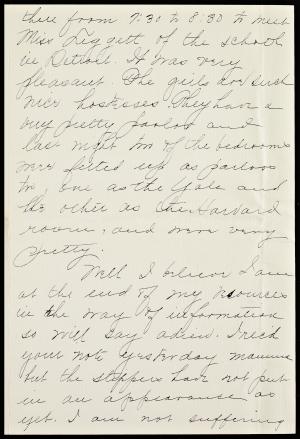 there from 7:30 to 8:30 to meet
Miss Leggett of the school
in Detroit. It was very
pleasant. The girls are such
nice hostesses. They have a
very pretty parlor and
last night two of the bedrooms
were fitted up as parlors
too, one as the Yale and
the other as the Harvard
room, and were very
pretty.
Well I believe I am
at the end of my resources
in the way of information
so will say adieu. I rec'd
your note yesterday mamma
but the slippers have not put
in an appearance as
yet. I am not suffering